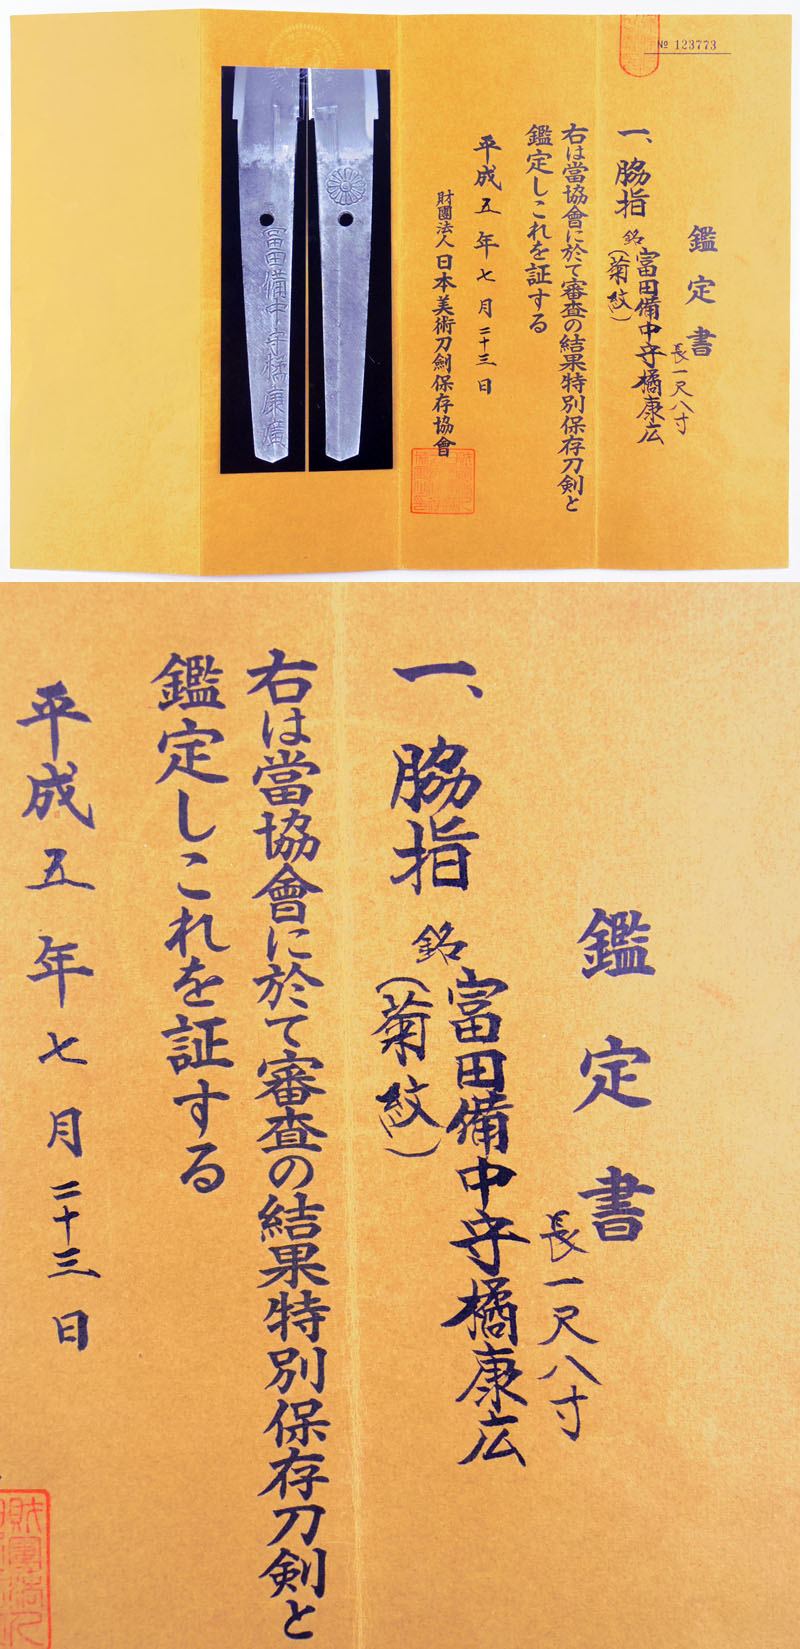 № 123773
鑑定書
長一尺八寸
一、脇指 銘 富田備中守橘康広
(菊紋)
右は當協會に於て審査の結果特別保存刀剣と
鑑定しこれを証する
平成五年七月二十三日
財團法人日本美術刀劍保存協會
富田備中守橘康廣
鑑定書
長一尺八寸
一、脇指 銘 富田備中守橘康広
(菊紋)
右は當協會に於て審査の結果特別保存刀剣と
鑑定しこれを証する
平成五年七月二十三日
財團法人